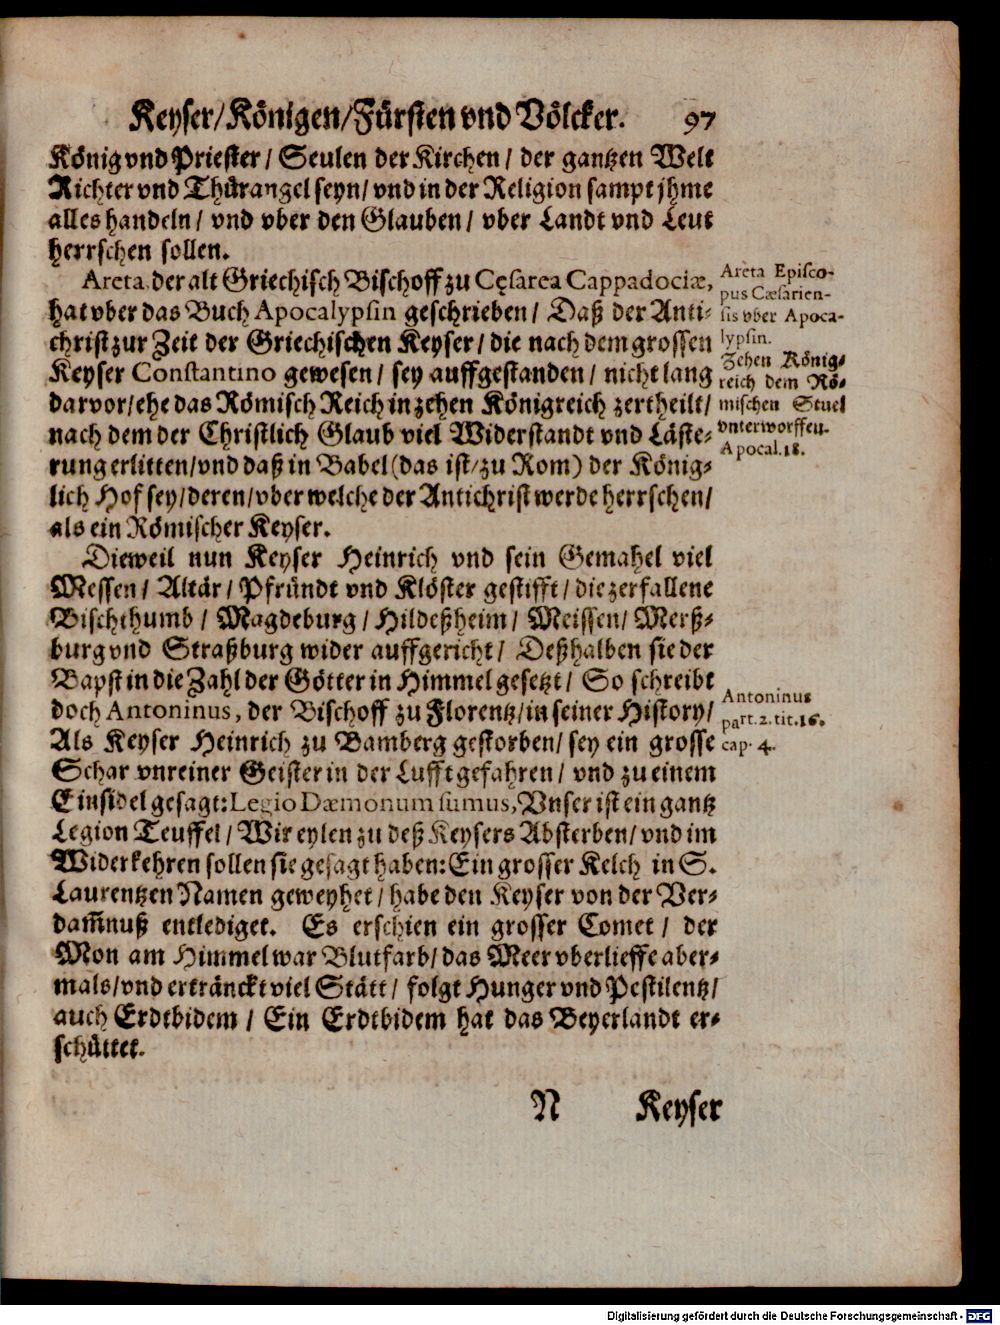 Keyser/Königen/Fürsten vnd Völcker. 97
König vnd Priester/ Seulen der Kirchen/ der gantzen Welt
Richter vnd Thürangel seyn/ vnd in der Religion sampt jhme
alles handeln/ vnd vber den Glauben/ vber Landt vnd Leut
herrschen sollen.
Areta der alt Griechisch Bischoff zu Cęsarea Cappadociæ,
hat vber das Buch Apocalypsin geschrieben/ Daß der Anti-
christ zur Zeit der Griechischen Keyser/ die nach dem grossen
Keyser Constantino gewesen/ sey auffgestanden/ nicht lang
darvor/ehe das Römisch Reich in zehen Königreich zertheilt/
nach dem der Christlich Glaub viel Widerstandt vnd Läste-
rung erlitten/vnd daß in Babel (das ist/zu Rom) der König-
lich Hof sey/deren/vber welche der Antichrist werde herrschen/
als ein Römischer Keyser.
Areta Episco-
pus Cæsarien-
sis vber Apoca-
lypsin.
Zehen König-
reich dem Rö-
mischen Stuel
vnterworffen.
Apocal.18.
Dieweil nun Keyser Heinrich vnd sein Gemahel viel
Messen/ Altär/ Pfründt vnd Klöster gestifft/ die zerfallene
Bischthumb/ Magdeburg/ Hildeßheim/ Meissen/ Merß-
burg vnd Straßburg wider auffgericht/ Deßhalben sie der
Bapst in die Zahl der Götter in Himmel gesetzt/ So schreibt
doch Antoninus, der Bischoff zu Florentz/in seiner History/
Als Keyser Heinrich zu Bamberg gestorben/ sey ein grosse
Schar vnreiner Geister in der Lufft gefahren/ vnd zu einem
Einsidel gesagt: Legio Dæmonum sumus, Vnser ist ein gantz
Legion Teuffel/ Wir eylen zu deß Keysers Absterben/ vnd im
Widerkehren sollen sie gesagt haben: Ein grosser Kelch in S.
Laurentzen Namen geweyhet/ habe den Keyser von der Ver-
dam̄nuß entlediget. Es erschien ein grosser Comet/ der
Mon am Himmel war Blutfarb/ das Meer vberlieffe aber-
mals/vnd ertränckt viel Stätt/ folgt Hunger vnd Pestilentz/
auch Erdtbidem/ Ein Erdtbidem hat das Beyerlandt er-
schüttet.
Antoninus
part.2.tit.16.
cap. 4.
N Keyser
Digitalisierung gefördert durch die Deutsche Forschungsgemeinschaft - DFG